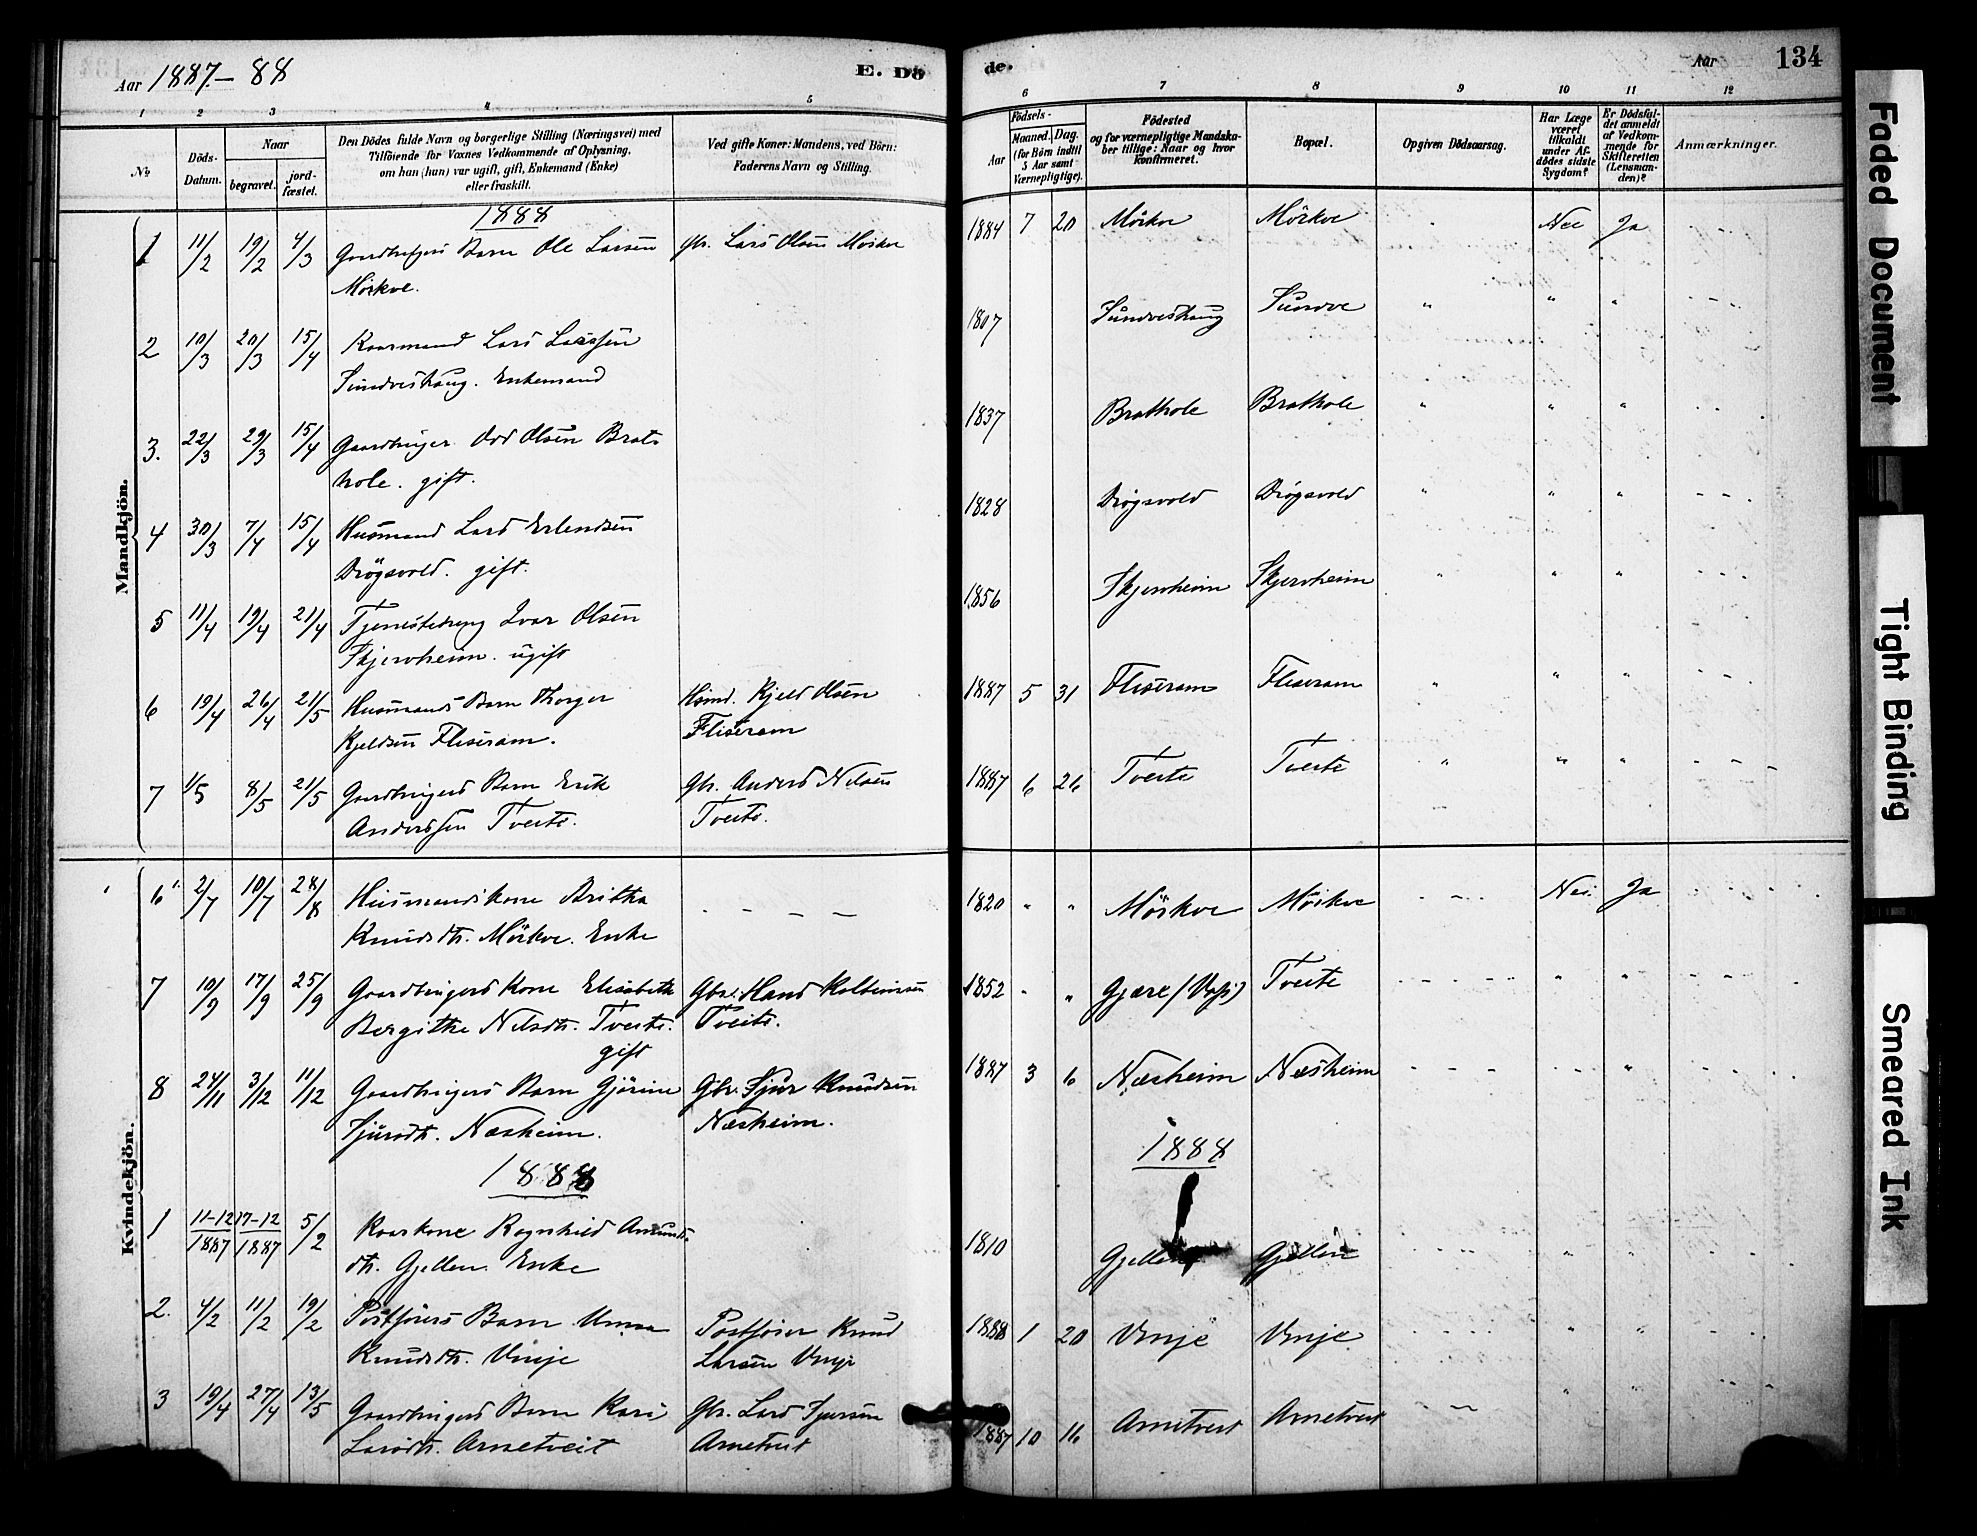 Aar 1887.-88
E. Dö
de.
Aar
134
1 2 3 4 5
6 7 8 9 10 11 12
No
Döds-
Datum.
Naar
begravet.
jord-
fæstet.
Den Dödes fulde Navn og borgerlige Stilling (Næringsvei) med
Tilföiende for Voxnes Vedkommende af Oplysning,
om han (hun) var ugift, gift, Enkemand (Enke)
eller fraskilt.
Ved gifte Koner: Mandens, ved Börn:
Faderens Navn og Stilling.
Födsels-
Aar
Maaned. Dag.
(for Börn indtil
5 Aar samt
Værnepligtige).
Födested
og for værnepligtige Mandska-
ber tillige: Naar og hvor
konfirmeret.
Bopæl.
Opgiven Dödsaarsag.
Har Læge
været
tilkaldt
under Af-
dødes sidste
Sygdom?
Er Dödsfal-
det anmeldt
af Vedkom-
mende for
Skifteretten
(Lensman-
den)?
Anmærkninger.
Mandkjön.
1888
1 11/2 19/2 4/3 Gaardbrugers Barn Ole Larsen Gbr. Lars Olsen Mörkve 1884 7 20 Mörkve Mörkve Nei Ja
Mörkve.
2 10/3 20/3 15/4 Kaarmand Lars Larssen 1807 Sundveshaug Sundve " " "
Sundveshaug. Enkemand
3. 22/3 29/3 15/4 Gaardbruger Odd Olsen Brat- 1837 Brathole Brathole " " "
hole. gift.
4 30/3 7/4 15/4 Husmand Lars Erlendsen 1828 Drøgsvold Drøgsvold " " "
Drøgsvold. gift.
5 11/4 19/4 21/4 Tjenestedreng Ivar Olsen 1856 Skjerveheim Skjerveheim " " "
Skjerveheim. ugift
6 19/4 26/4 21/5 Husmands Barn Thorger Hsmd. Kjeld Olsen 1887 5 31 Fliseram Fliseram " " "
Kjeldsen Fliseram. Fliseram
7 1/5 8/5 21/5 Gaardbrugers Barn Erik Gbr. Anders Nilsen 1887 6 26 Tveite Tveite " " "
Anderssen Tveite. Tveite.
Kvindekjön.
6 2/7 10/7 28/8 Husmandskone Britha 1820 " " Mörkve Mörkve Nei. Ja
Knudsdtr. Mörkve. Enke
7 10/9 17/9 25/9 Gaardbrugers Kone Elisabeth Gbr. Hans Kolbeinsen 1852 " " Gjære (Voss) Tveite " "
Bergithe Nilsdtr. Tveite. Tveite.
gift
8 24/11 3/12 11/12 Gaardbrugers Barn Gjörine Gbr. Sjur Knudsen 1887 3 6 Næsheim Næsheim "
Sjursdtr. Næsheim. Næsheim.
1888 1888
1 11-12/1887 17-12/1887 5/2 Kaarkone Ragnhild Amunds- 1810 Gjellen Gjellen " "
dtr. Gjellen. Enke
2. 4/2 11/2 19/2 Postförers Barn Postförer Knud 1888 1 20 Vinje Vinje " "
Knudsdtr. Vinje Larsen Vinje
3 19/4 27/4 13/5 Gaardbrugers Barn Kari Gbr. Lars Sjursen 1887 10 16 Arnetveit Arnetveit " "
Larsdtr. Arnetveit Arnetveit
Faded Document
Tight Binding
Smeared Ink